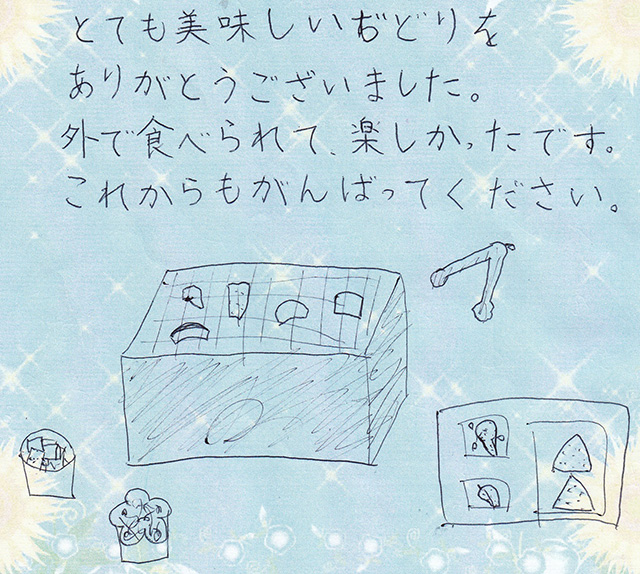 とても美味しいぢどりを
ありがとうございました。
外で食べられて、楽しかったです。
これからもがんばってください。